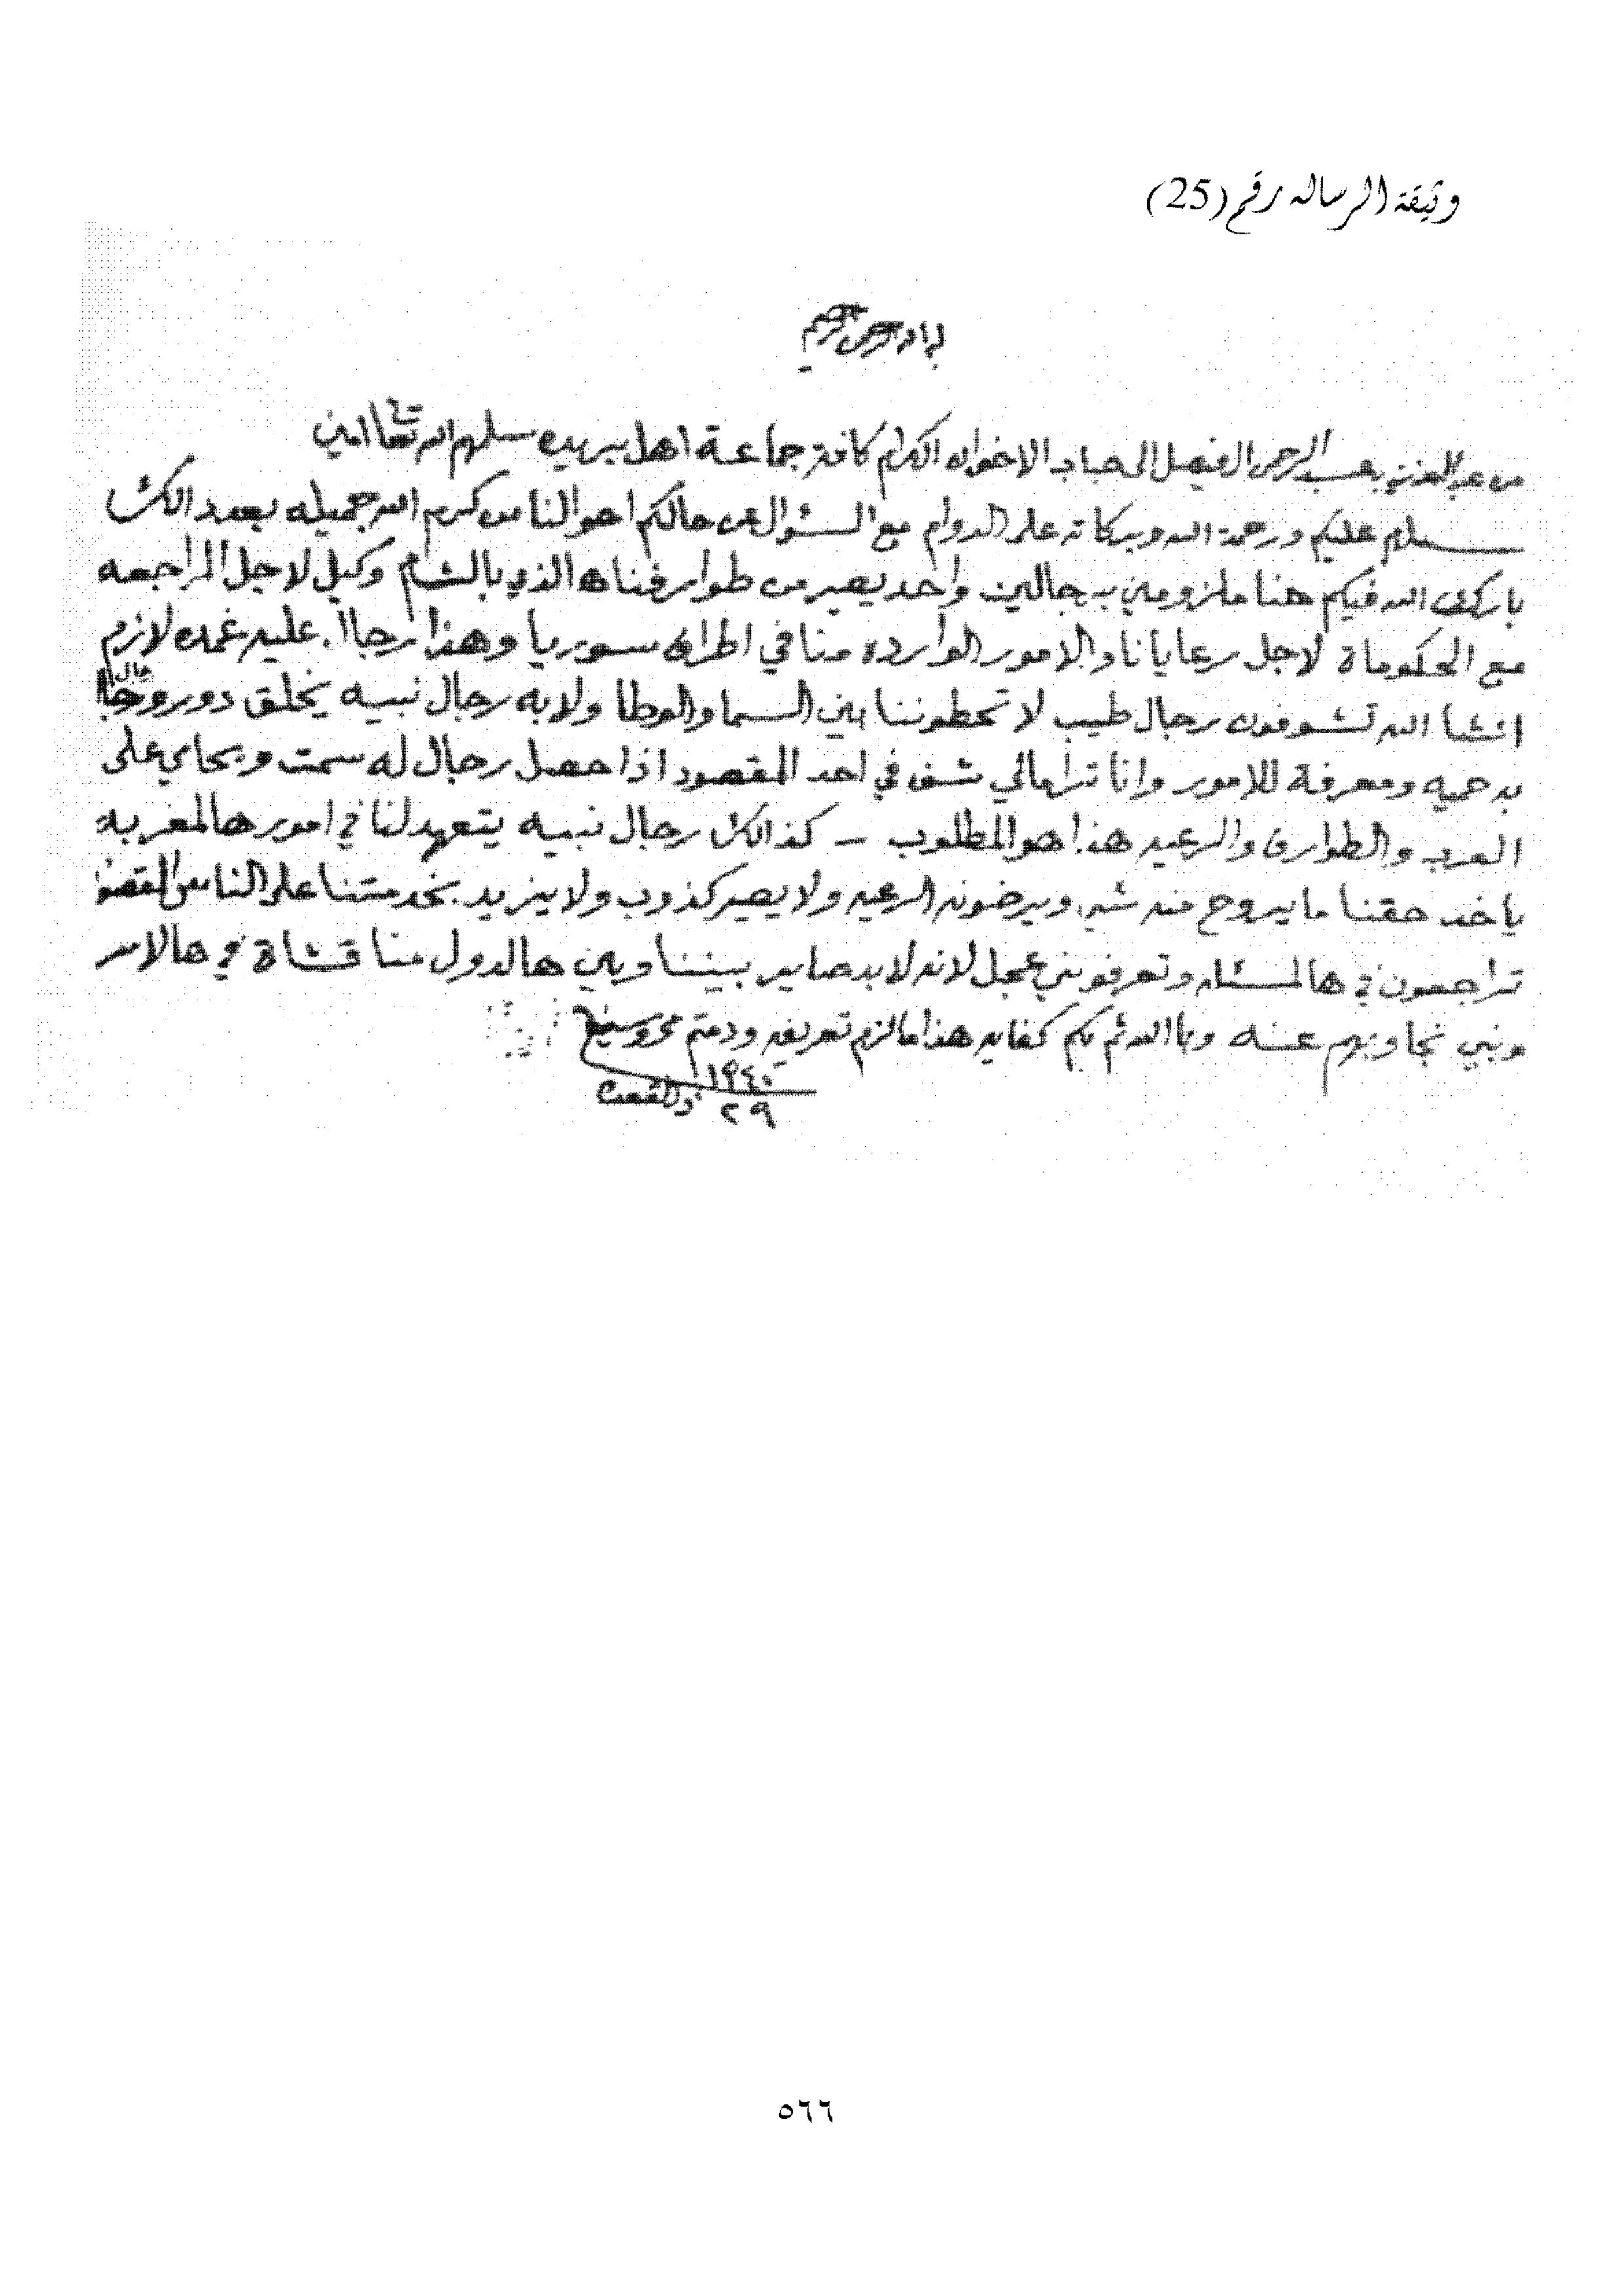 وثيقة الرساله رقم (25)
من عبد العزيز بن عبد الرحمن الفيصل الى جناب الاخوان الكرام كافة جماعة اهل بريده سلمهم الله تعالى امين
سلام عليكم ورحمة الله وبركاته على الدوام مع السؤال عن حالكم احوالنا من كرم الله جميله بعدد الكث
بارك الله فيكم هنا ملزومين برجالين واحد يصير من طوارفناها الذي بالشام وكيل لاجل المراجعه
مع الحكوماة لاجل رعايانا والامور الوارده منا في اطراف سوريا وهذا رجال عليه عمده لازم
انشا الله تشوفون رجال طيب لا تحطوننا بين السما والوطا ولابه رجال نبيه يخلق دور وحال
به حميه ومعرفة للامور وانا ترا مالي شف في احد المقصود اذا حصل رجال له سمت ويحامي على
العرب والطوارف والرعيه هذا هو المطلوب – كذالك رجال نبيه يتعهد لنا في امور هالمغربه
ياخذ حقنا ما يروح منه شي ويرضون الرعيه ولا يصير كذوب ولا يزيد بخدمتنا على الناس المقصو
تراجعون في هالمسئله وتعرفوني عجل لانه لابد صاير بيننا وبين هالدول مناقشاة في هالامر
ونبي نجاوبهم عنه وباالله ثم بكم كفايه هذا مالزم تعريفه ودمتم محروسين
١٣٤٠
٢٩ ذالقعدة
٥٦٦